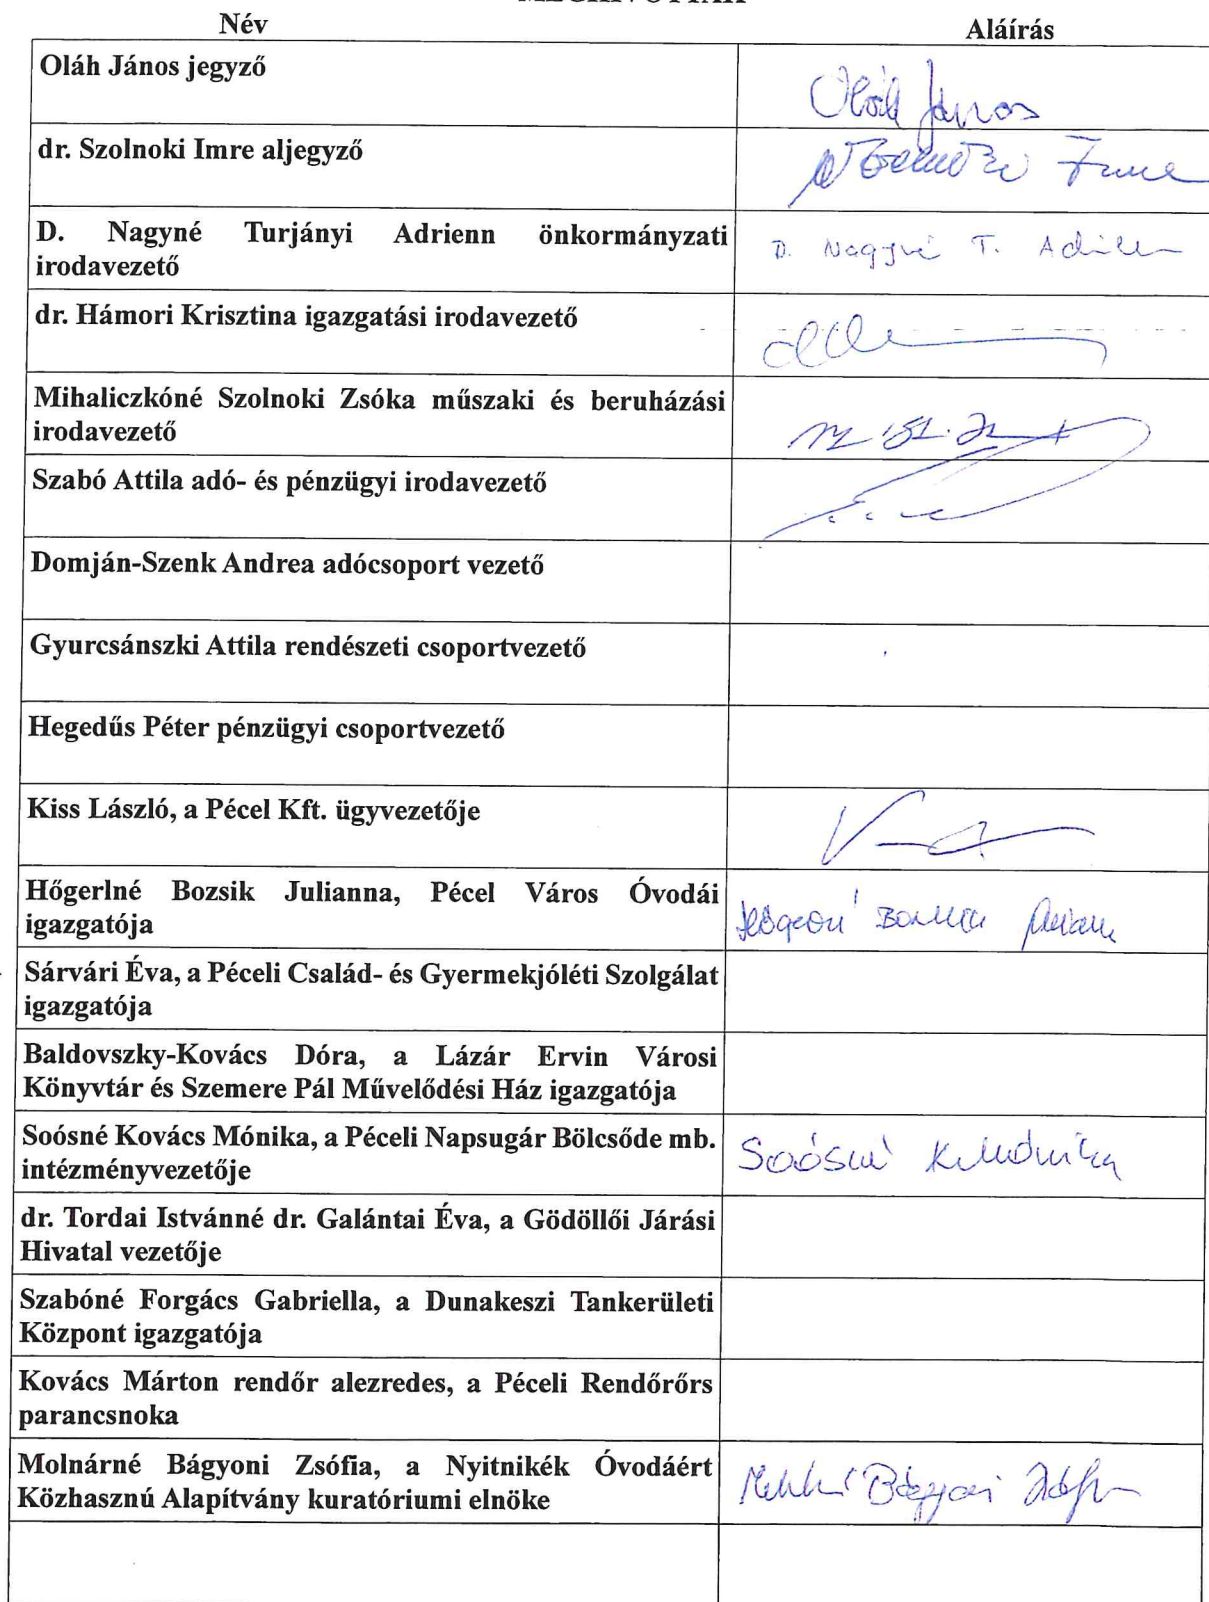 Név
Aláírás
Oláh János jegyző
Oláh János
dr. Szolnoki Imre aljegyző
Imre
D. Nagyné Turjányi Adrienn önkormányzati
irodavezető
D. Nagyné T. Adrienn
dr. Hámori Krisztina igazgatási irodavezető
Mihaliczkóné Szolnoki Zsóka műszaki és beruházási
irodavezető
Szabó Attila adó- és pénzügyi irodavezető
Domján-Szenk Andrea adócsoport vezető
Gyurcsánszki Attila rendészeti csoportvezető
Hegedűs Péter pénzügyi csoportvezető
Kiss László, a Pécel Kft. ügyvezetője
Hőgerlné Bozsik Julianna, Pécel Város Óvodái
igazgatója
Sárvári Éva, a Péceli Család- és Gyermekjóléti Szolgálat
igazgatója
Baldovszky-Kovács Dóra, a Lázár Ervin Városi
Könyvtár és Szemere Pál Művelődési Ház igazgatója
Soósné Kovács Mónika, a Péceli Napsugár Bölcsőde mb.
intézményvezetője
Soósné K. Mónika
dr. Tordai Istvánné dr. Galántai Éva, a Gödöllői Járási
Hivatal vezetője
Szabóné Forgács Gabriella, a Dunakeszi Tankerületi
Központ igazgatója
Kovács Márton rendőr alezredes, a Péceli Rendőrőrs
parancsnoka
Molnárné Bágyoni Zsófia, a Nyitnikék Óvodáért
Közhasznú Alapítvány kuratóriumi elnöke
Bágyoni Zsófia